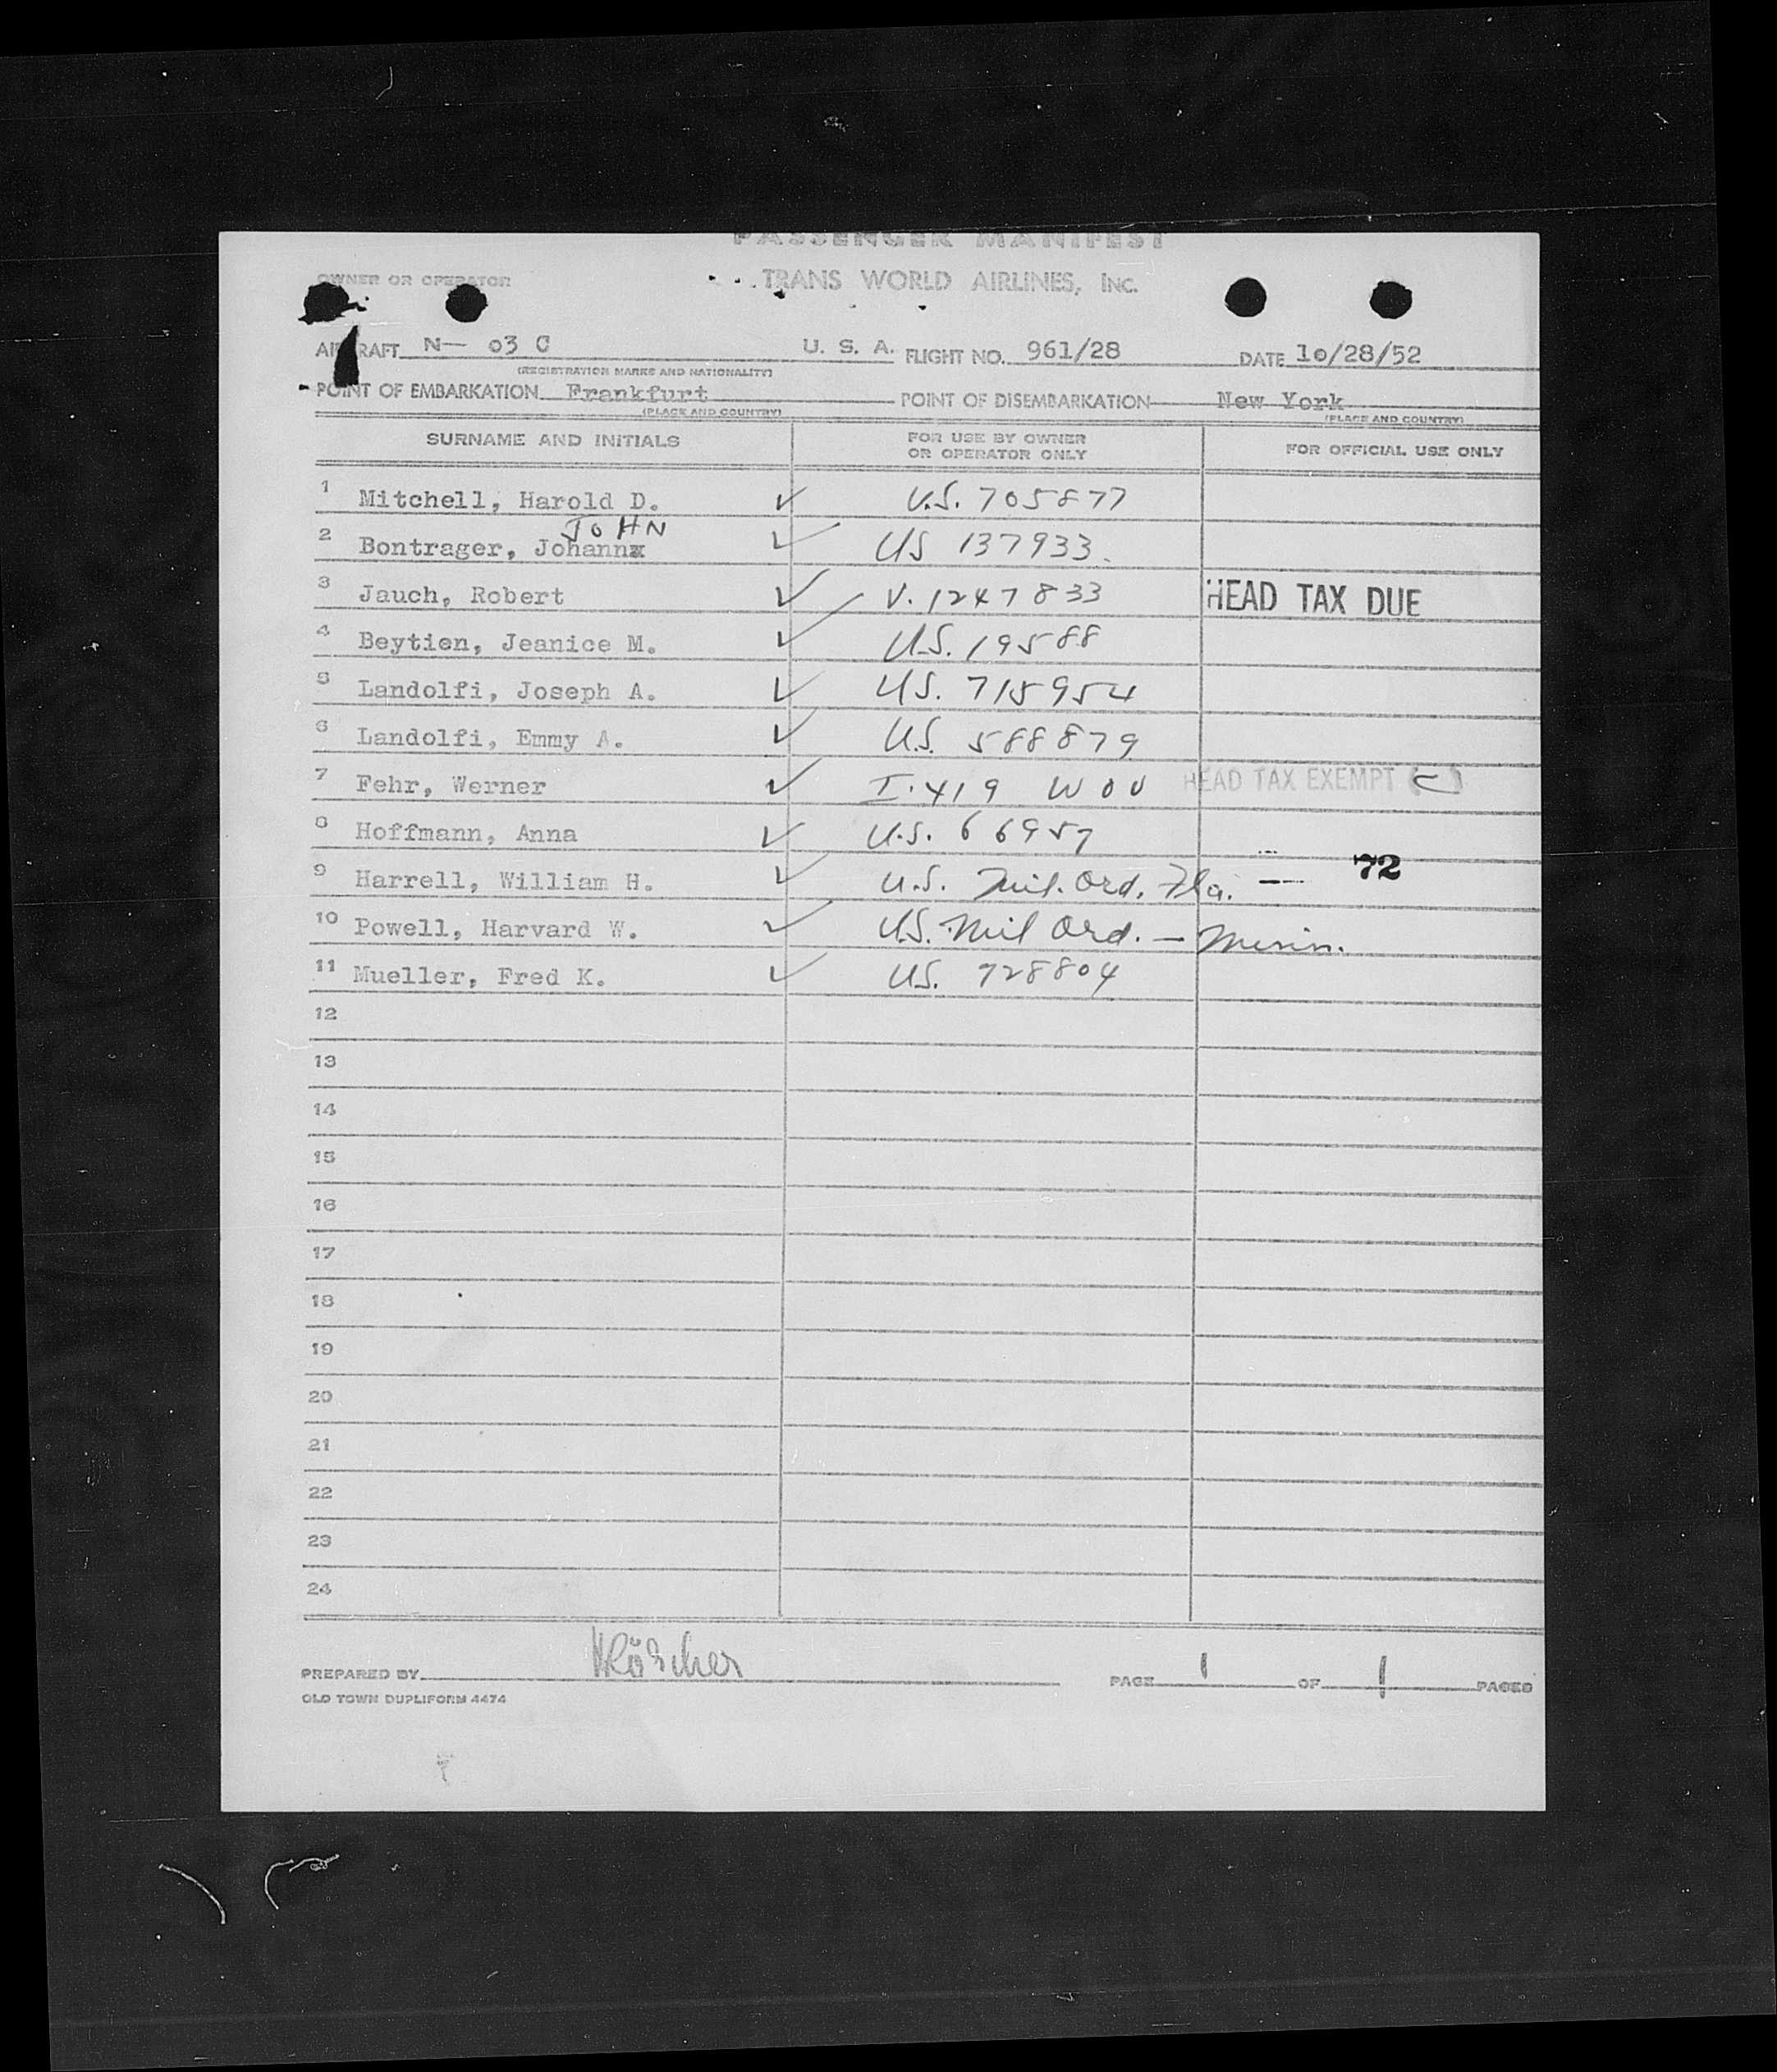 PASSENGER MANIFEST
OWNER OR OPERATOR TRANS WORLD AIRLINES, INC.
AIRCRAFT N— 03 C U. S. A. FLIGHT NO. 961/28 DATE 10/28/52
(REGISTRATION MARKS AND NATIONALITY)
POINT OF EMBARKATION Frankfurt POINT OF DISEMBARKATION New York
(PLACE AND COUNTRY) (PLACE AND COUNTRY)
SURNAME AND INITIALS FOR USE BY OWNER OR OPERATOR ONLY FOR OFFICIAL USE ONLY
1 Mitchell, Harold D. ✓ U.S. 705877
JOHN
2 Bontrager, Johannx ✓ US 137933.
3 Jauch, Robert ✓ V. 1247833 HEAD TAX DUE
4 Beytien, Jeanice M. ✓ U.S. 19588
5 Landolfi, Joseph A. ✓ US. 715954
6 Landolfi, Emmy A. ✓ U.S. 588879
7 Fehr, Werner ✓ I. 419 HEAD TAX EXEMPT
8 Hoffmann, Anna ✓ U.S. 66957
9 Harrell, William H. ✓ U.S. Mil. Ord. Fla. — 72
10 Powell, Harvard W. ✓ U.S. Mil Ord. — Minn.
11 Mueller, Fred K. ✓ US. 728804
12
13
14
15
16
17
18
19
20
21
22
23
24
PREPARED BY PAGE 1 OF 1 PAGES
OLD TOWN DUPLIFORM 4474